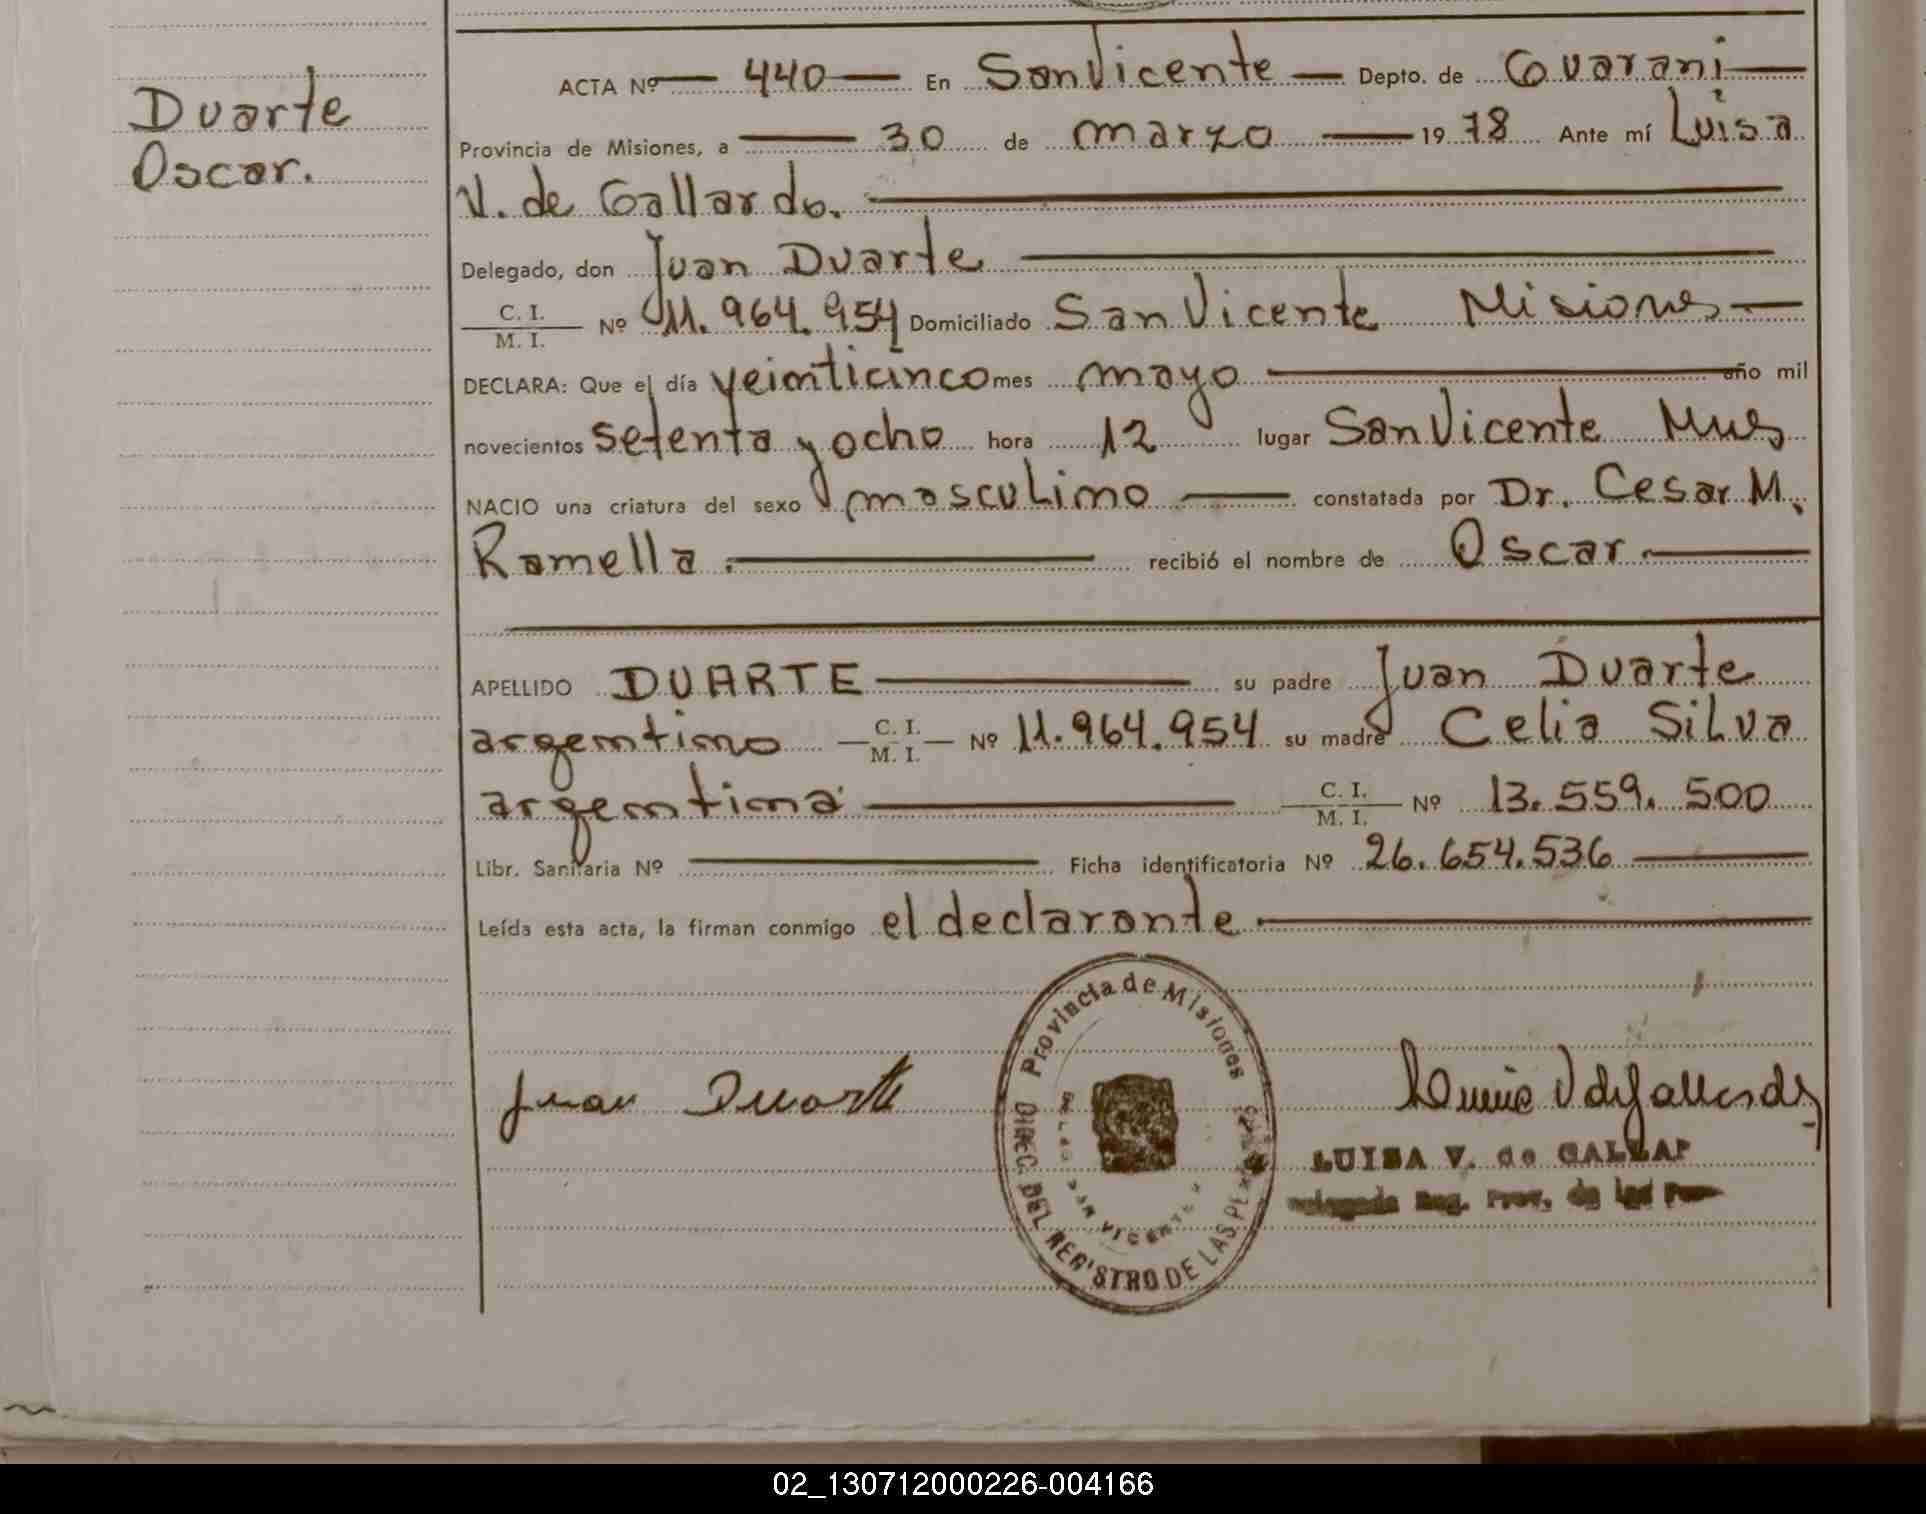 Duarte
Oscar.
ACTA Nº 440 En San Vicente Depto. de Guarani
Provincia de Misiones, a 30 de marzo 1978 Ante mí Luisa
V. de Gallardo.
Delegado, don Juan Duarte
C. I.
M. I. Nº 11.964.954 Domiciliado San Vicente Misiones
DECLARA: Que el día veinticinco mes mayo año mil
novecientos setenta y ocho hora 12 lugar San Vicente Mnes
NACIO una criatura del sexo masculino constatada por Dr. Cesar M.
Ramella. recibió el nombre de Oscar.
APELLIDO DUARTE su padre Juan Duarte
argentino C. I. M. I. Nº 11.964.954 su madre Celia Silva
argentina C. I. M. I. Nº 13.559.500
Libr. Sanitaria Nº Ficha identificatoria Nº 26.654.536
Leída esta acta, la firman conmigo el declarante.
Provincia de Misiones
DIREC. DEL REGISTRO DE LAS PE
SAN VICENTE
Juan Duarte
LUISA V. de GALLAR
Delegada Reg. Prov. de las Per
02_130712000226-004166